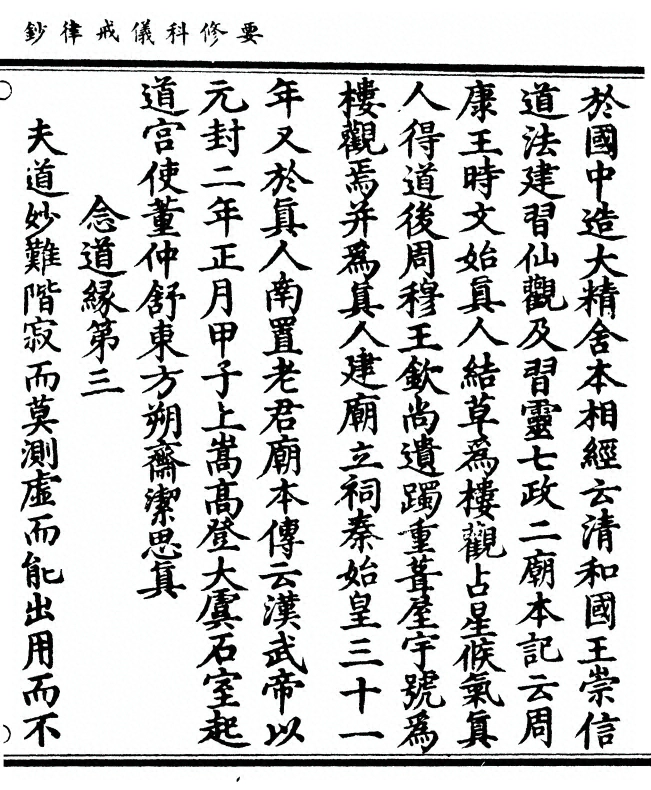 要修科儀戒律鈔
於國中造大精舍本相經云清和國王崇信
道法建習仙觀及習靈七政二廟本記云周
康王時文始真人結草爲樓觀占星候氣真
人得道後周穆王欽尚遺躅重葺屋宇號爲
樓觀焉并爲真人建廟立祠秦始皇三十一
年又於真人南置老君廟本傳云漢武帝以
元封二年正月甲子上嵩高登大虞石室起
道宮使董仲舒東方朔齋潔思真
念道緣第三
夫道妙難階寂而莫測虛而能出用而不